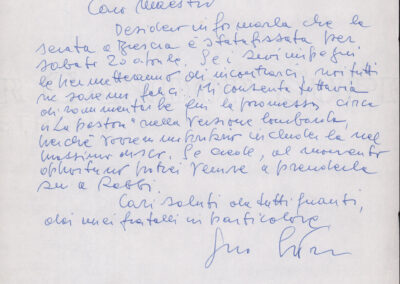 Caro Maestro
Desidero informarla che la
serata a Brescia è stata fissata per
sabato 20 aprile. Se i suoi impegni
le permetteranno di incontrarci, noi tutti
ne saremo felici. Mi consenta tuttavia
di rammentarle qui la promessa circa
"La pastora" nella versione lombarda,
perché vorremmo includerla nel
prossimo disco. Se crede, al momento
opportuno potrei venire a prenderla
su a Rabbi.
Cari saluti da tutti quanti,
dai miei fratelli in particolare